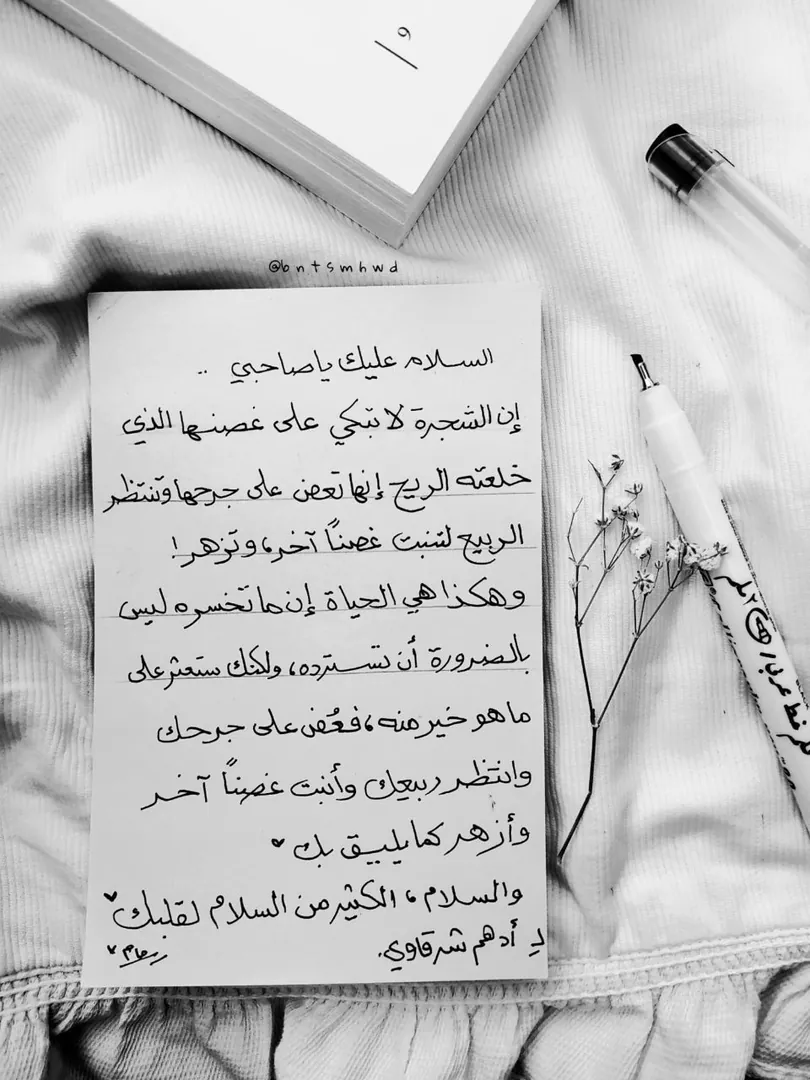 /٩
@bntsmhwd
السلام عليك ياصاحبي ..
إن الشجرة لا تبكي على غصنها الذي
خلعته الريح إنها تعض على جرحها وتنتظر
الربيع لتنبت غصناً آخر، وتزهر!
وهكذا هي الحياة إن ما تخسره ليس
بالضرورة أن تسترده، ولكنك ستعثر على
ما هو خير منه، فعُض على جرحك
وانتظر ربيعك وأنبت غصناً آخر
وأزهر كما يليق بك ♥
والسلام، الكثير من السلام لقلبك ♥
لـ أدهم شرقاوي.
قلم خط عربي / ٢ملم